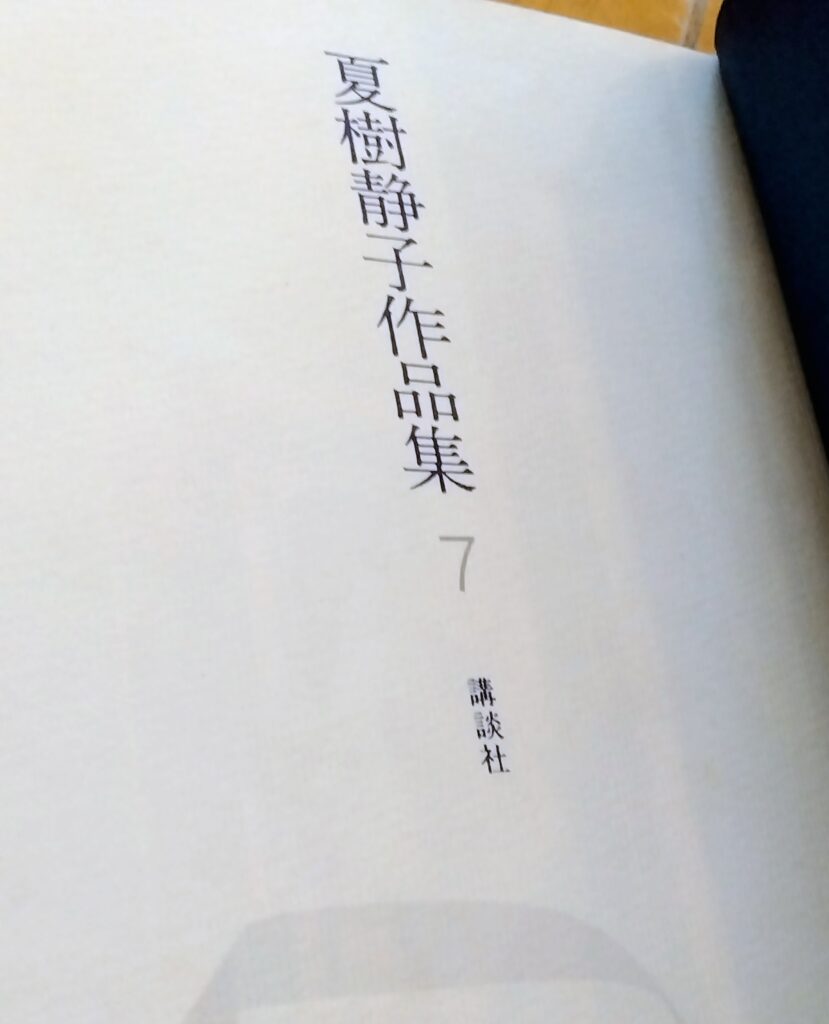 夏樹静子作品集
7
講談社